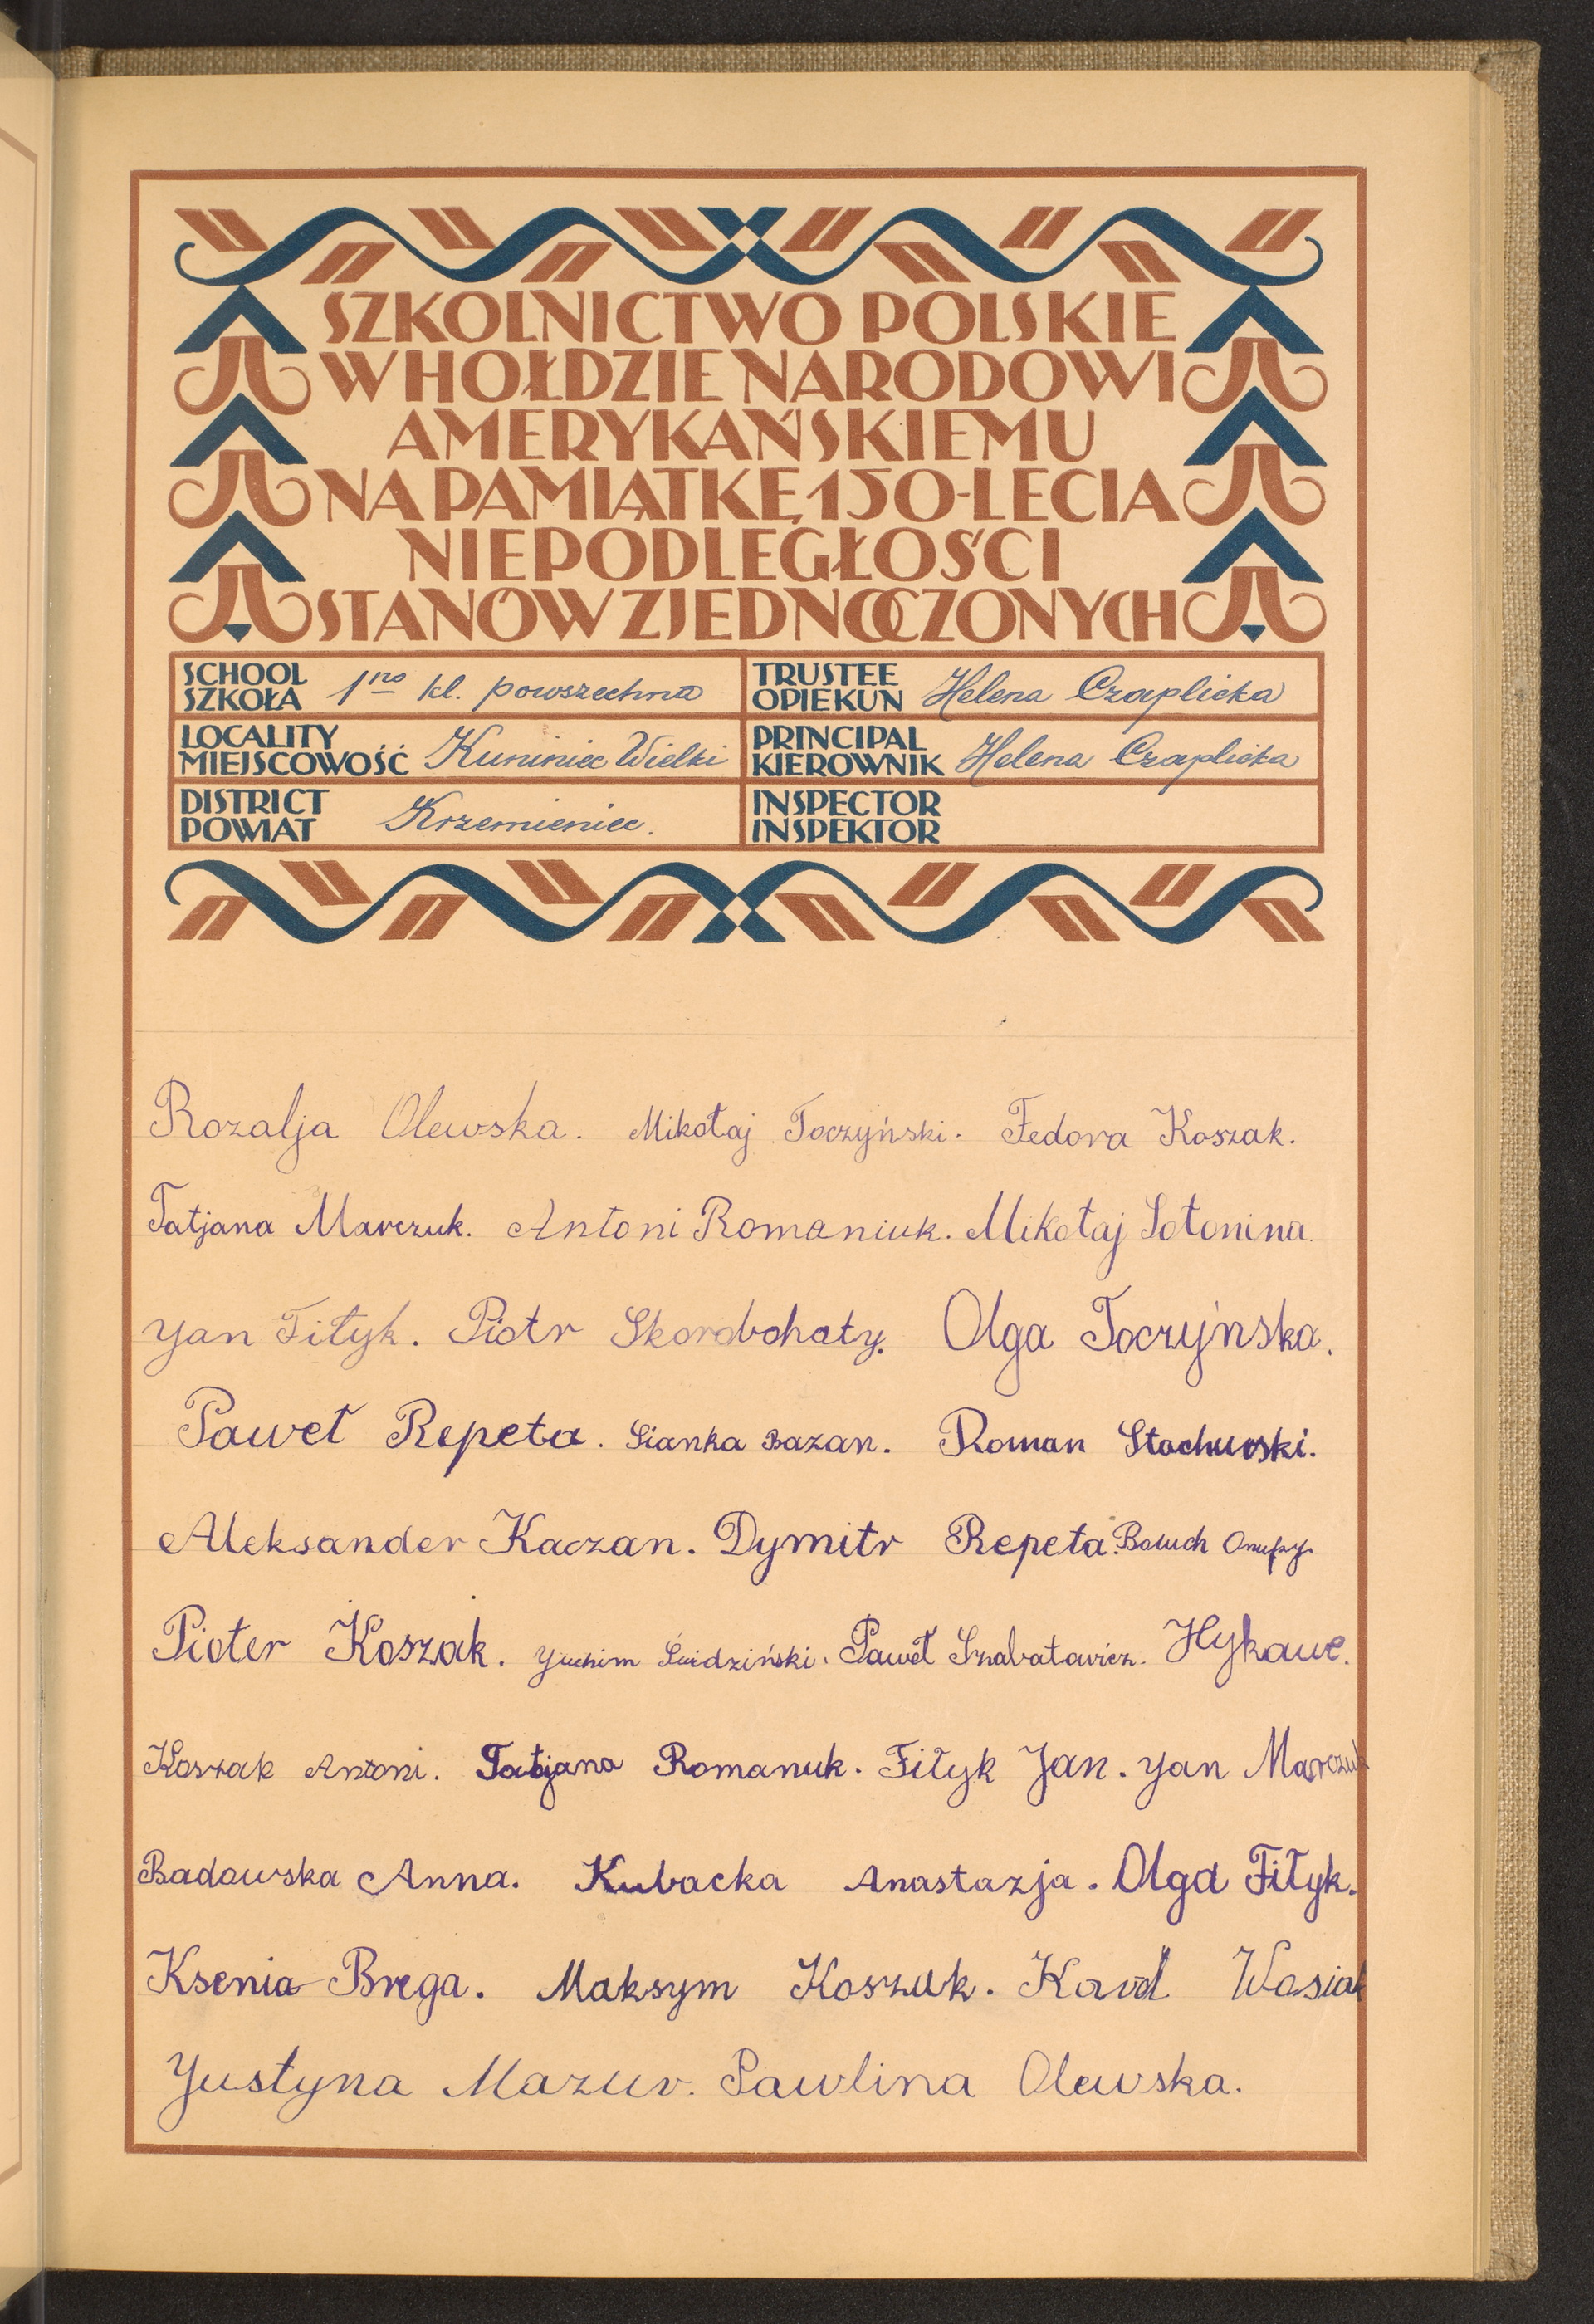 SZKOLNICTWO POLSKIE
W HOŁDZIE NARODOWI
AMERYKAŃSKIEMU
NA PAMIĄTKĘ 150-LECIA
NIEPODLEGŁOŚCI
STANÓW ZJEDNOCZONYCH
SCHOOL
SZKOŁA 1no kl. powszechna
TRUSTEE
OPIEKUN Helena Czaplicka
LOCALITY
MIEJSCOWOŚĆ Kuniniec Wielki
PRINCIPAL
KIEROWNIK Helena Czaplicka
DISTRICT
POWIAT Krzemieniec.
INSPECTOR
INSPEKTOR
Rozalja Olewska. Mikołaj Toczyński. Fedora Koszak.
Tatjana Marczuk. Antoni Romaniuk. Mikołaj Sołonina.
Yan Fityk. Piotr Skorobohaty. Olga Toczyńska.
Paweł Repeta. Sianka Bazan. Roman Stachurski.
Aleksander Kaczan. Dymitr Repeta. Boluch
Pioter Koszak. Yuchim Paweł Hykawe.
Koszak Antoni. Tatjana Romanuk. Fiłyk Jan. Yan Marczuk
Badowska Anna. Kubacka Anastazja. Olga Fiłyk.
Ksenia Brega. Maksym Koszuk. Karol Wasiak
Yustyna Mazur. Pawlina Olewska.